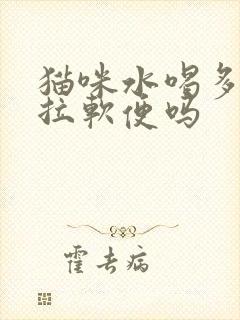 猫咪水喝多
拉軟便吗
霍去病